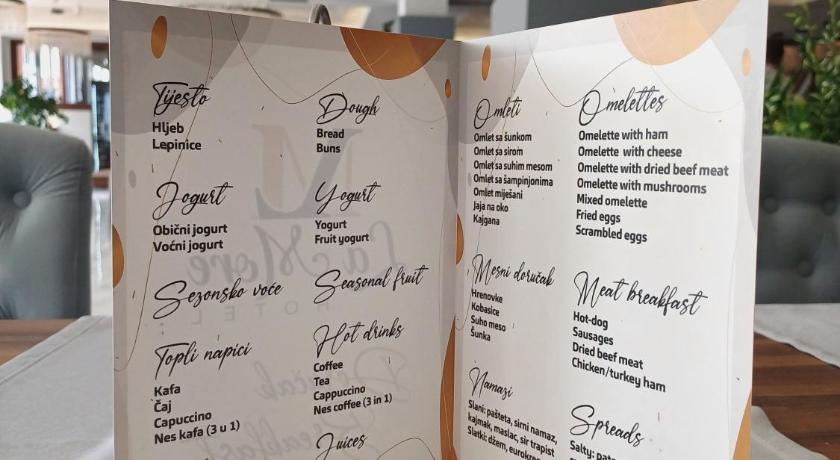 Tijesto
Hljeb
Lepinice
Jogurt
Obični jogurt
Voćni jogurt
Sezonsko voće
Topli napici
Kafa
Čaj
Capuccino
Nes kafa (3 u 1)
Dough
Bread
Buns
Yogurt
Yogurt
Fruit yogurt
Seasonal fruit
Hot drinks
Coffee
Tea
Cappuccino
Nes coffee (3 in 1)
Juices
Omleti
Omlet sa šunkom
Omlet sa sirom
Omlet sa suhim mesom
Omlet sa šampinjonima
Omlet miješani
Jaja na oko
Kajgana
Mesni doručak
Hrenovke
Kobasice
Suho meso
Šunka
Namazi
Slani: pašteta, sirni namaz,
kajmak, maslac, sir trapist
Slatki: džem, eurokrem
Omelettes
Omelette with ham
Omelette with cheese
Omelette with dried beef meat
Omelette with mushrooms
Mixed omelette
Fried eggs
Scrambled eggs
Meat breakfast
Hot-dog
Sausages
Dried beef meat
Chicken/turkey ham
Spreads
Salty: